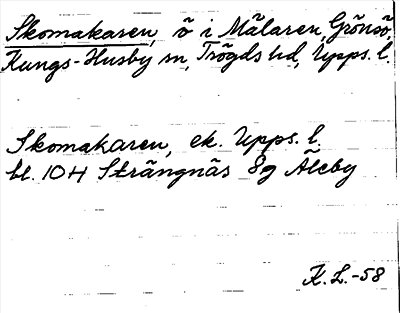 Skomakaren, ö i Mälaren, Grönsö,
Kungs-Husby sn, Trögds hd, Upps. l.
Skomakaren, ek. Upps. l.
bl. 10H Strängnäs 8g Åleby
K.L.-58